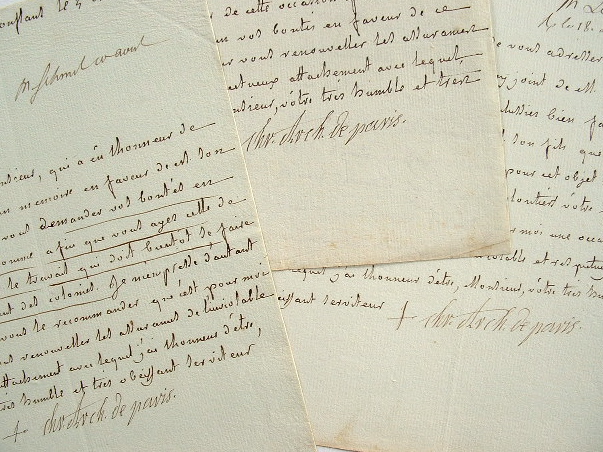 Conflans le
M
onsieur, qui a eu l'honneur de
un memoire en faveur de M. son
vous demander vos bontés en
omme afin que vous ayes celle de
le travail qui doit bientot se faire
ant des colonies. Je m'empresse d'autant
vous le recommander que c'est pour moi
vous renouveller les assurances de l'inviolable
attachement avec lequel j'ai l'honneur d'être,
tres humble et tres obéissant serviteur
+ chr. Arch. de paris.
de cette occasion
vos bontés en faveur de ce
vous renouveller les assurances
ectueux attachement avec lequel
nsieur, vôtre très humble et tres
chr. Arch. de paris.
le 18.
vous adresser
y joint de M.
bien fa
son fils que
pour cet objet
vôtre
moi une occa
lequel j'ai l'honneur d'être, Monsieur, vôtre très hum
eissant serviteur
+ chr. Arch. de paris.